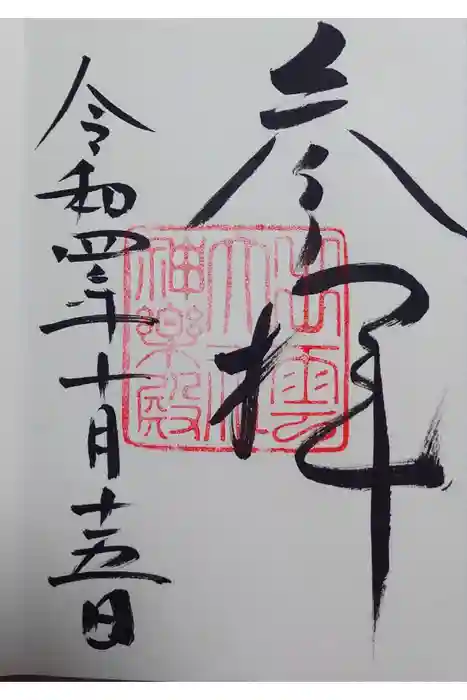 参拝
出雲
大社
神楽殿
令和四年十月十五日